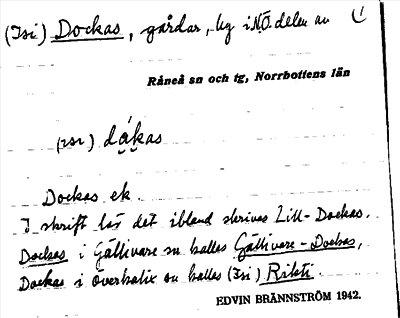 (Isi) Dockas, gårdar, lig i N.Ö. delen av (1
Råneå sn och tg, Norrbottens län
(isi) dákas
Dockas ek.
I skrift lär det ibland skrivas Lill-Dockas.
Dockas i Gällivare sn kallas Gällivare-Dockas,
Dockas i Överkalix sn kallas (Isi) Riksti.
EDVIN BRÄNNSTRÖM 1942.